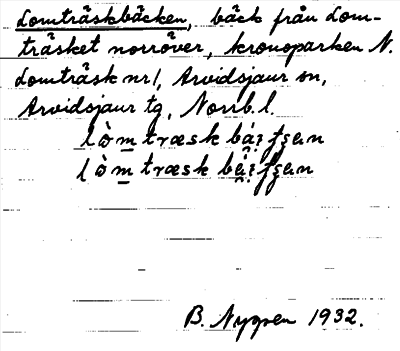 Lomträskbäcken, bäck från Lom-
träsket norröver, kronoparken N.
Lomträsk nr 1, Arvidsjaur sn,
Arvidsjaur tg, Norrb. l.
lòm træsk
lòm træsk
B. Nygren 1932.